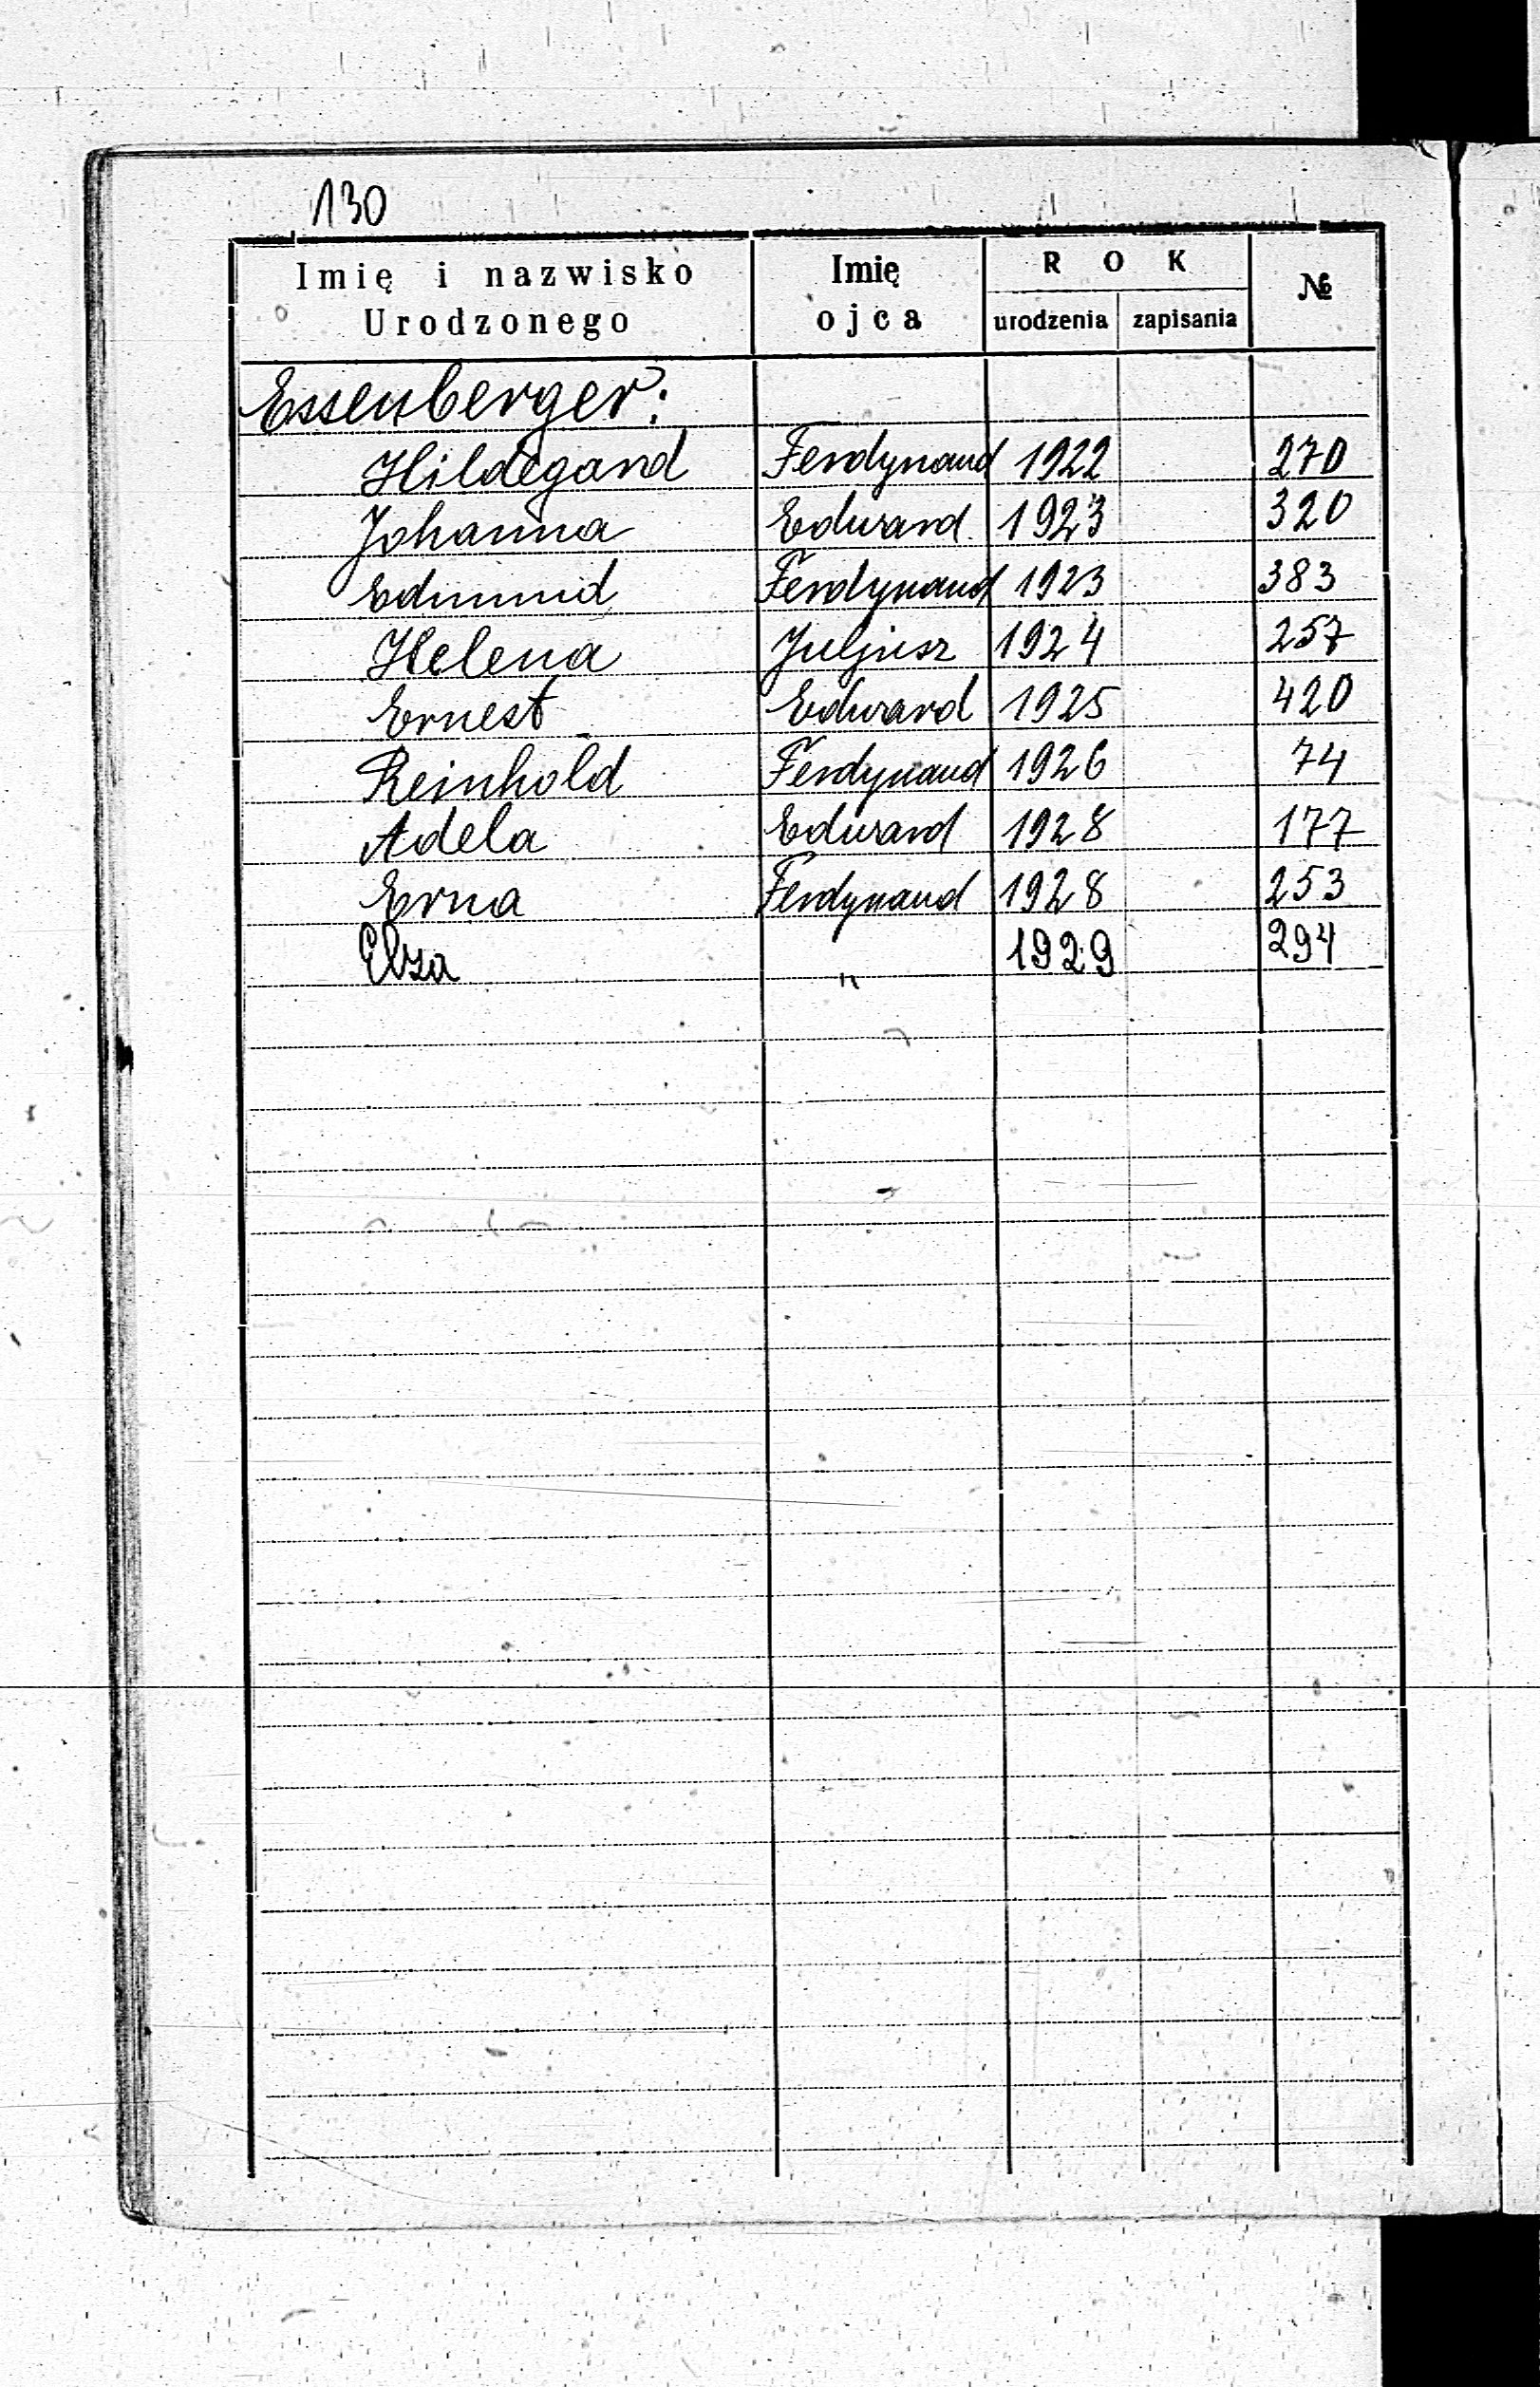 130
Imię i nazwisko Urodzonego | Imię ojca | ROK urodzenia | ROK zapisania | №
Essenberger:
Hildegard | Ferdynand | 1922 | | 270
Johanna | Edward | 1923 | | 320
Edmund | Ferdynand | 1923 | | 383
Helena | Juljusz | 1924 | | 257
Ernest | Edward | 1925 | | 420
Reinhold | Ferdynand | 1926 | | 74
Adela | Edward | 1928 | | 177
Erna | Ferdynand | 1928 | | 253
Elza | " | 1929 | | 294